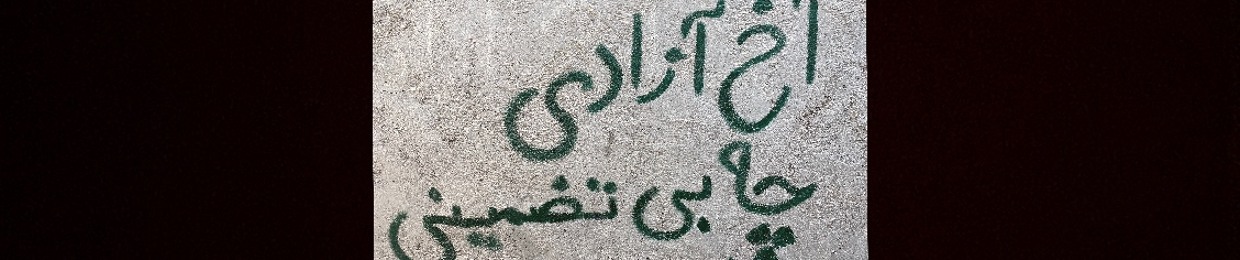 آخ آزادی
چه بی تضمینی